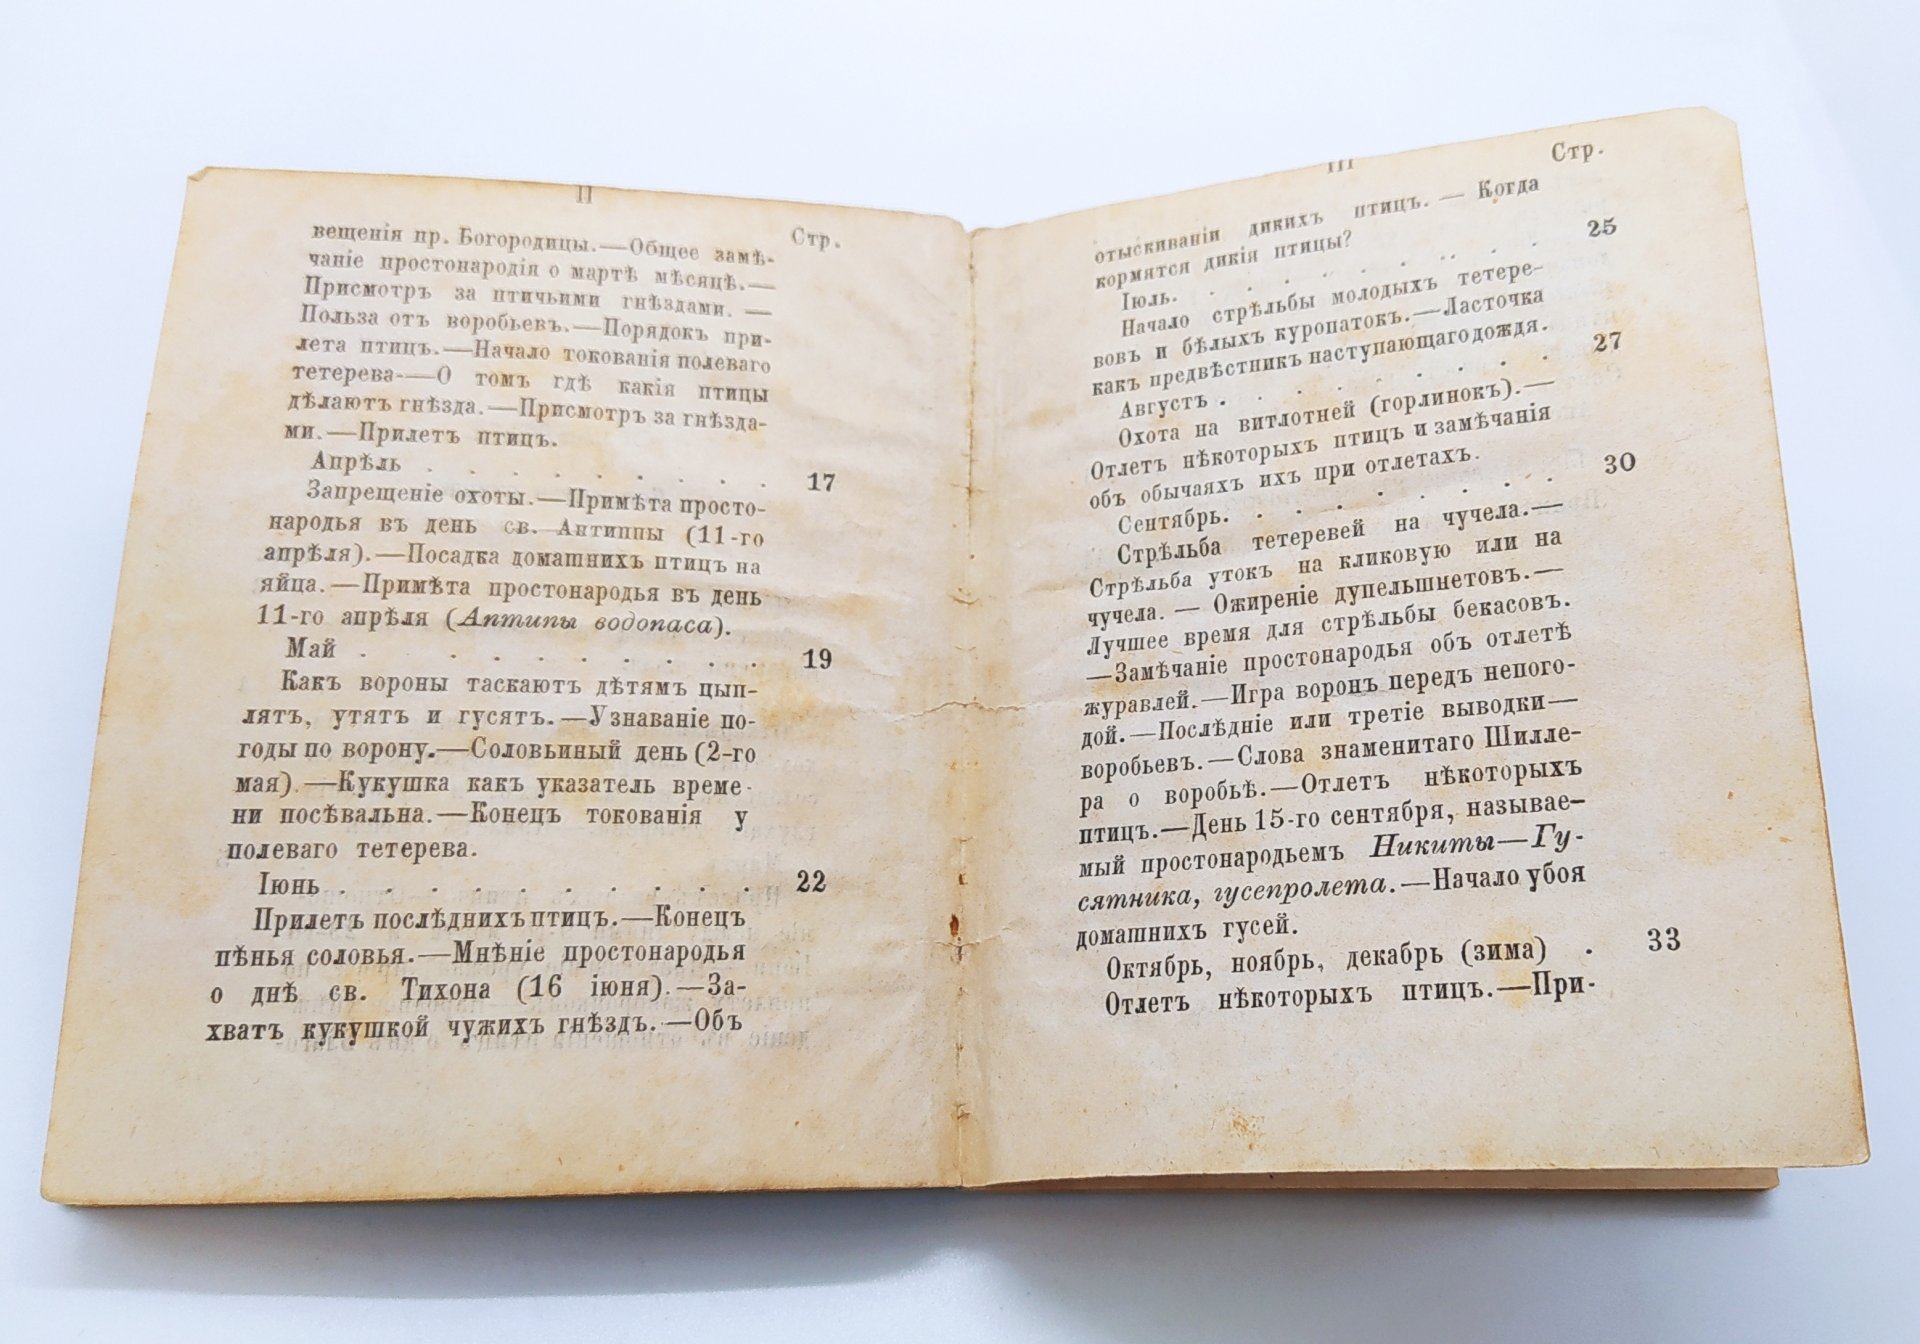 II
Стр.
вещенія пр. Богородицы.—Общее замѣ-
чаніе простонародія о мартѣ мѣсяцѣ.—
Присмотръ за птичьими гнѣздами. —
Польза отъ воробьевъ.—Порядокъ при-
лета птицъ.—Начало токованія полеваго
тетерева-—О томъ гдѣ какія птицы
дѣлаютъ гнѣзда.—Присмотръ за гнѣзда-
ми.—Прилетъ птицъ.
Апрѣль . . . . . . . . . 17
Запрещеніе охоты.—Примѣта просто-
народья въ день св. Антиппы (11-го
апрѣля).—Посадка домашнихъ птицъ на
яйца.—Примѣта простонародья въ день
11-го апрѣля (Антипы водопаса).
Май . . . . . . . . . 19
Какъ вороны таскаютъ дѣтямъ цып-
лятъ, утятъ и гусятъ.—Узнаваніе по-
годы по ворону.—Соловьиный день (2-го
мая).—Кукушка какъ указатель време-
ни посѣвальна.—Конецъ токованія у
полеваго тетерева.
Іюнь . . . . . . . . . . 22
Прилетъ послѣднихъ птицъ.—Конецъ
пѣнья соловья.—Мнѣніе простонародья
о днѣ св. Тихона (16 іюня).—За-
хватъ кукушкой чужихъ гнѣздъ.—Объ
III
Стр.
отыскиваніи дикихъ птицъ. — Когда
кормятся дикія птицы?
Іюль. . . . . . . . . 25
Начало стрѣльбы молодыхъ тетере-
вовъ и бѣлыхъ куропатокъ.—Ласточка
какъ предвѣстникъ наступающаго дождя.
Августъ . . . . . . . . 27
Охота на витлотней (горлинокъ).—
Отлетъ нѣкоторыхъ птицъ и замѣчанія
объ обычаяхъ ихъ при отлетахъ.
Сентябрь. . . . . . . . . 30
Стрѣльба тетеревей на чучела.—
Стрѣльба утокъ на кликовую или на
чучела. — Ожиреніе дупельшнетовъ.—
Лучшее время для стрѣльбы бекасовъ.
—Замѣчаніе простонародья объ отлетѣ
журавлей.—Игра воронъ передъ непого-
дой.—Послѣдніе или третіе выводки—
воробьевъ.—Слова знаменитаго Шилле-
ра о воробьѣ.—Отлетъ нѣкоторыхъ
птицъ.—День 15-го сентября, называе-
мый простонародьемъ Никиты—Гу-
сятника, гусепролета.—Начало убоя
домашнихъ гусей.
Октябрь, ноябрь, декабрь (зима) . 33
Отлетъ нѣкоторыхъ птицъ.—При-